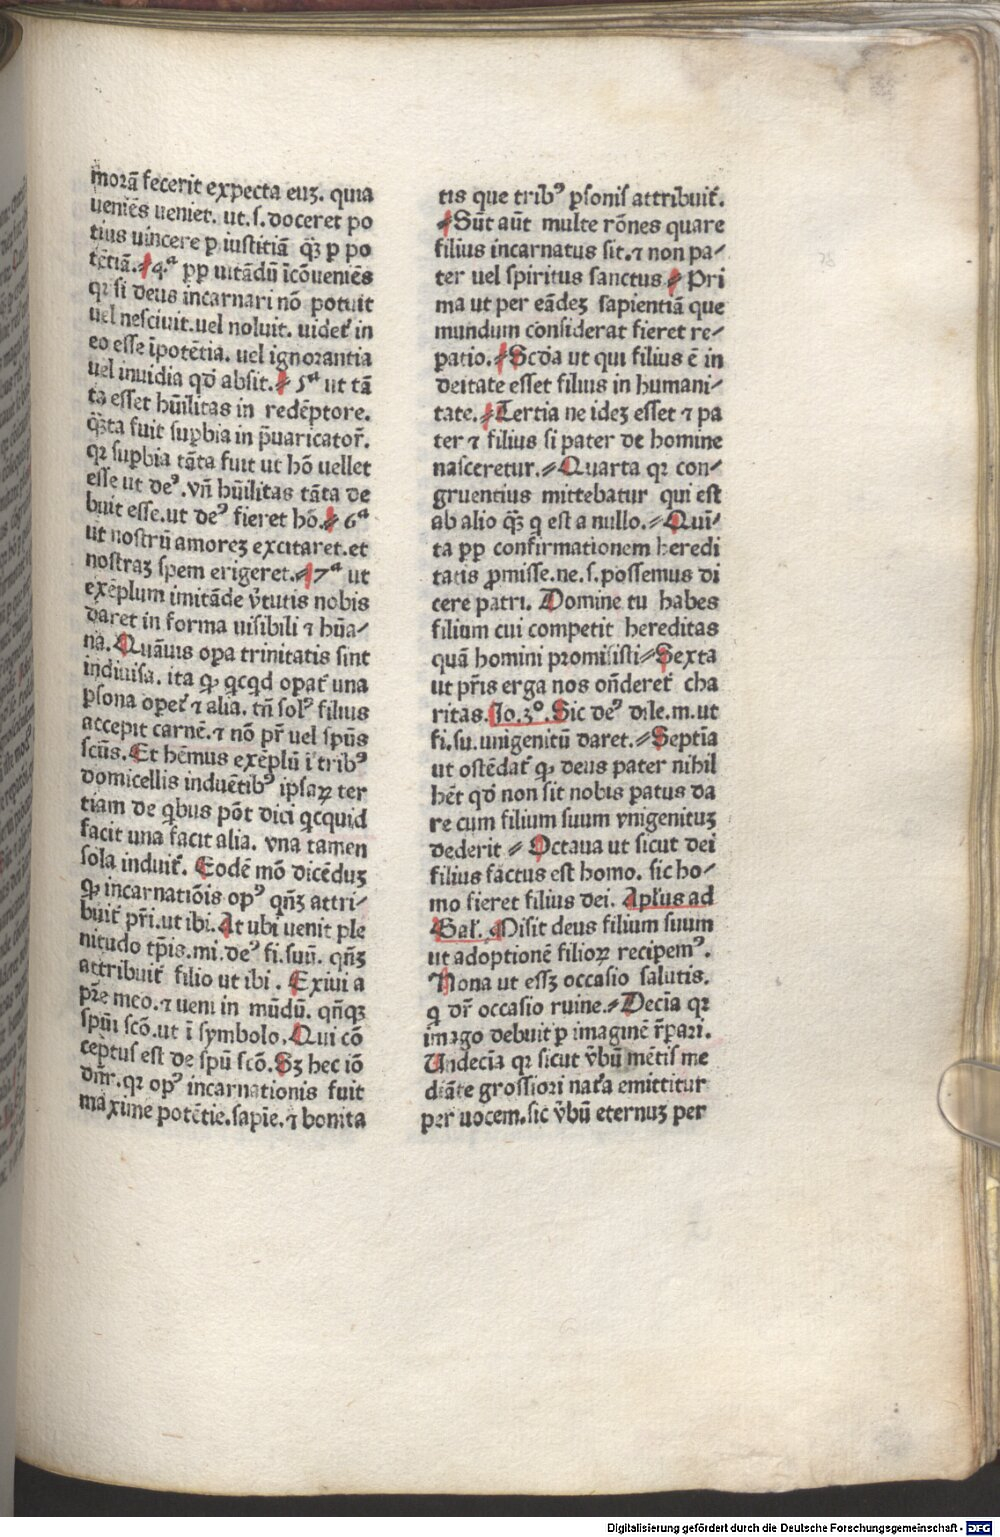 morā fecerit expecta euꝫ. quia
ueniēs ueniet. ut.s.doceret po
tius uincere ꝑ iustitiā qꝫ̄ ꝑ po
tētiā.⸗4ª ꝓp uitādū īcōueniēs
qꝛ si deus incarnari nō potuit
uel nesciuit.uel noluit. uidet᷑ in
eo esse īpotētia. uel ignorantia
uel inuidia qd̄ absit.⸗ 5ª ut tā
ta esset hūilitas in redēptore.
qꝫ̄ta fuit suꝑbia in p̄uaricator̄.
qꝛ suꝑbia tāta fuit ut hō uellet
esse ut deꝰ.vn̄ hūilitas tāta de
buit esse.ut deꝰ fieret hō.⸗ 6ª
ut nostrū amoreꝫ excitaret.et
nostraꝫ spem erigeret.⸗7ª ut
exēplum imitāde v̄tutis nobis
daret in forma uisibili ⁊ hūa⸗
na. Quāuis oꝑa trinitatis sint
indiuisa. ita ꝙ qcqd opat᷑ una
ꝑsona opet᷑ ⁊ alia. tn̄ solꝰ filius
accepit carnē.⁊ nō pr̄ uel spūs
scūs. Et hēmus exēplū ī tribꝰ
domicellis induētibꝰ ipsaꝝ ter
tiam de qbus pōt dici qcquid
facit una facit alia. vna tamen
sola induit᷑. Eodē mō dicēduꝫ
ꝙ incarnatiōis opꝰ qn̄ꝫ attri⸗
buit᷑ pr̄i.ut ibi. At ubi uenit ple
nitudo tp̄is.mi.deꝰ fi.suū. qn̄ꝫ
attribuit᷑ filio ut ibi. Exiui a
pr̄e meo.⁊ ueni in mūdū. qn̄qꝫ
spūi scō.ut ī symbolo. Qui cō
ceptus est de spū scō. Sꝫ hec iō
dn̄r.qꝛ opꝰ incarnationis fuit
maxime potētie.sapīe.⁊ bonita
tis que tribꝰ ꝑsonis attribuit᷑.
⸗Sūt aūt multe rōnes quare
filius incarnatus sit.⁊ non pa⸗
ter uel spiritus sanctus⸗ Pri
ma ut per eādeꝫ sapientiā que
mundum considerat fieret re⸗
patio.⸗Scd̄a ut qui filius ē in
deitate esset filius in humani⸗
tate.⸗Tertia ne ideꝫ esset ⁊ pa
ter ⁊ filius si pater de homine
nasceretur.⸗Quarta qꝛ con⸗
gruentius mittebatur qui est
ab alio qꝫ̄ q est a nullo.⸗Quī⸗
ta ꝓp confirmationem heredi
tatis ꝓmisse.ne.s.possemus di
cere patri. Domine tu habes
filium cui competit hereditas
quā homini promisisti⸗Sexta
ut pr̄is erga nos on̄deret᷑ cha
ritas. Jo.3º. Sic deꝰ dile.m.ut
fi.su.unigenitū daret.⸗Septīa
ut ostēdat᷑ ꝙ deus pater nihil
hēt qd̄ non sit nobis ꝑatus da
re cum filium suum vnigenituꝫ
dederit⸗ Octaua ut sicut dei
filius factus est homo. sic ho⸗
mo fieret filius dei. Apl̄us ad
Gal᷑. Misit deus filium suum
ut adoptionē filioꝝ recipemꝰ.
Nona ut essꝫ occasio salutis.
q dr̄ occasio ruine.⸗Decīa qꝛ
imago debuit ꝑ imaginē r̄pari.
Undecīa qꝛ sicut v̄bū mētis me
diāte grossiori nat᷑a emittitur
per uocem.sic v̄bū eternuꝫ per
Digitalisierung gefördert durch die Deutsche Forschungsgemeinschaft - DFG